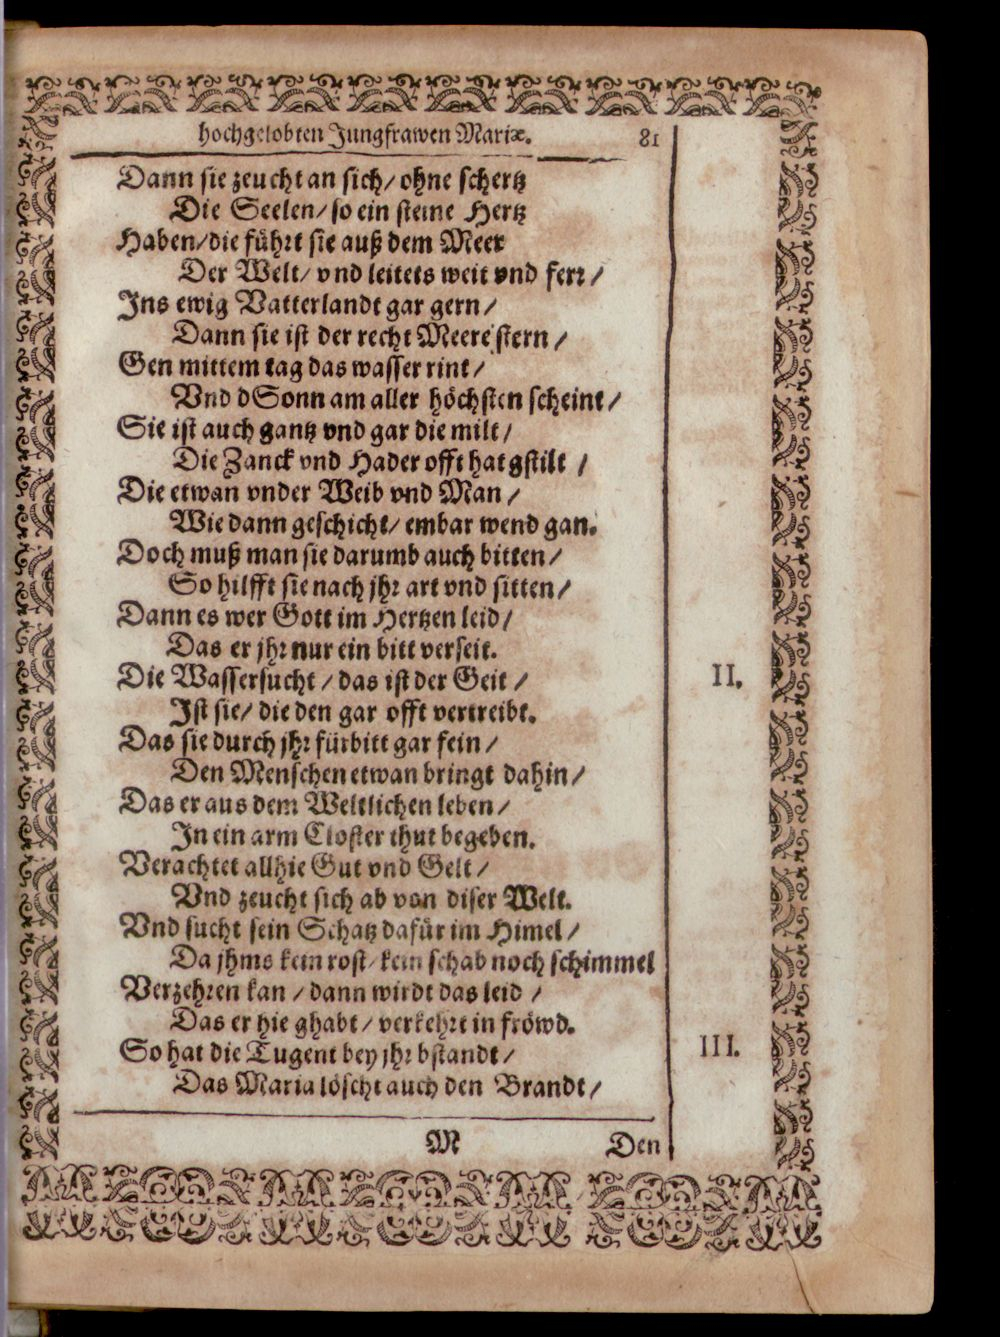 hochgelobten Jungfrawen Mariæ. 81
Dann sie zeucht an sich/ ohne schertz
Die Seelen/ so ein steine Hertz
Haben/ die führt sie auß dem Meer
Der Welt/ vnd leitets weit vnd ferr/
Ins ewig Vatterlandt gar gern/
Dann sie ist der recht Meere stern/
Gen mittem tag das wasser rint/
Vnd dSonn am aller höchsten scheint/
Sie ist auch gantz vnd gar die milt/
Die Zanck vnd Hader offt hat gstilt /
Die etwan vnder Weib vnd Man /
Wie dann geschicht/ embar wend gan.
Doch muß man sie darumb auch bitten/
So hilfft sie nach jhr art vnd sitten/
Dann es wer Gott im Hertzen leid/
Das er jhr nur ein bitt verseit.
Die Wassersucht / das ist der Geit / II.
Ist sie/ die den gar offt vertreibt.
Das sie durch jhr fürbitt gar fein /
Den Menschen etwan bringt dahin/
Das er aus dem Weltlichen leben/
In ein arm Closter thut begeben.
Verachtet allhie Gut vnd Gelt/
Vnd zeucht sich ab von diser Welt.
Vnd sucht sein Schatz dafür im Himel/
Da jhms kein rost/ kein schab noch schimmel
Verzehren kan / dann wirdt das leid /
Das er hie ghabt/ verkehrt in fröwd.
So hat die Tugent bey jhr bstandt/ III.
Das Maria löscht auch den Brandt/
M Den